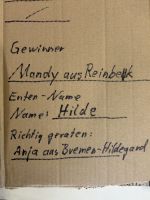 Gewinner
Mandy aus Reinbek
Enten-Name
Name: Hilde
Richtig geraten:
Anja aus Bremen-Hildegard